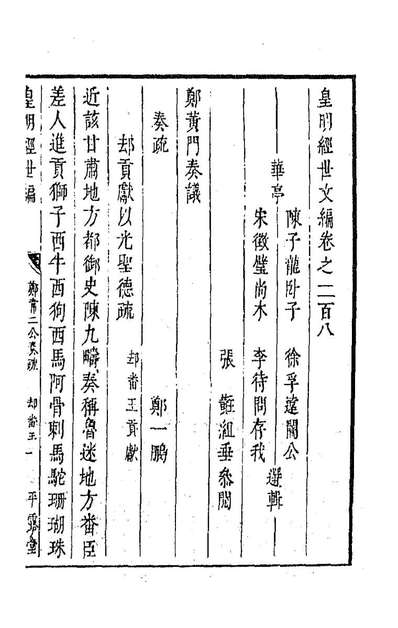 皇明經世文編卷之二百八
華亭
陳子龍臥子 徐孚遠闇公
宋徵璧尚木 李待問存我 選輯
張 組垂參閱
鄭黃門奏議
奏疏 鄭一鵬
却貢獻以光聖德疏 却番王貢獻
近該甘肅地方都御史陳九疇奏稱魯迷地方番臣
差人進貢獅子西牛西狗西馬阿骨刺馬駝珊瑚珠
皇明經世編 二公奏疏 却番王 一 平露堂